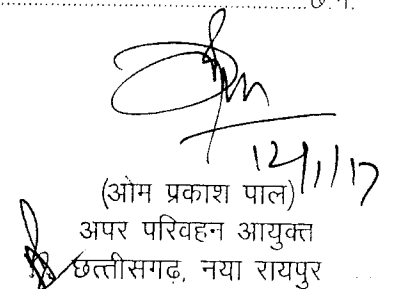 छ.ग.
12/1/17
(ओम प्रकाश पाल)
अपर परिवहन आयुक्त
छत्तीसगढ़, नया रायपुर